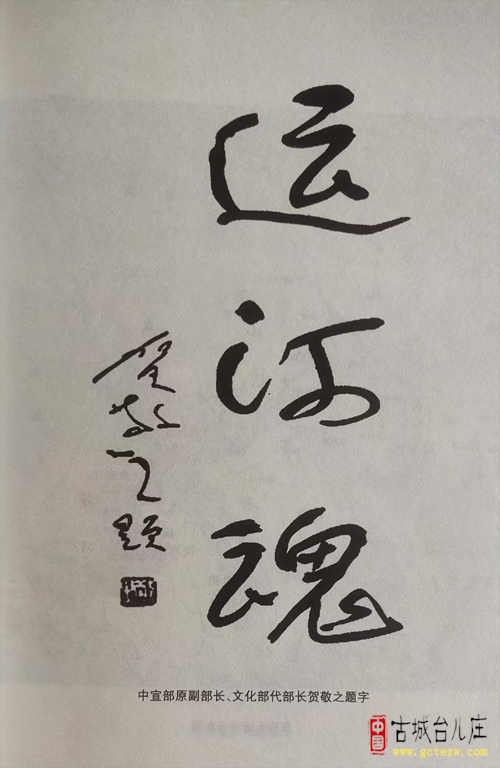 运河魂
贺敬之题
中宣部原副部长、文化部代部长贺敬之题字
中国
古城台儿庄
www.gctezw.com